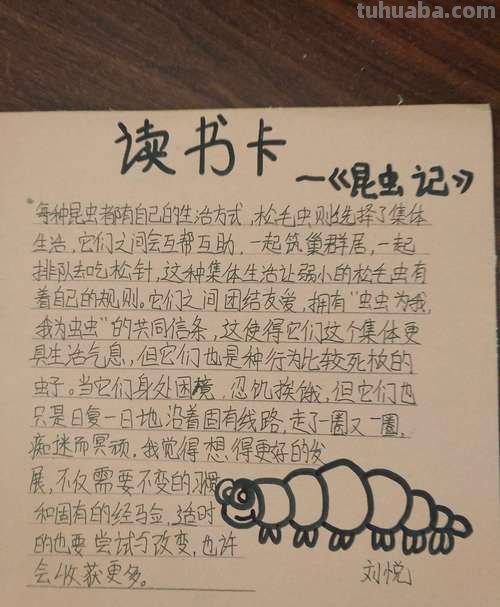 tuhuaba.com
读书卡
—《昆虫记》
每种昆虫都有自己的生活方式，松毛虫则选择了集体
生活，它们之间会互帮互助，一起筑巢群居，一起
排队去吃松针，这种集体生活让弱小的松毛虫有
着自己的规则。它们之间团结友爱，拥有“虫虫为我，
我为虫虫”的共同信条，这使得它们这个集体更
具生活气息，但它们也是种行为比较死板的
虫子。当它们身处困境，忍饥挨饿，但它们也
只是日复一日地沿着固有线路，走了一圈又一圈，
痴迷而冥顽，我觉得想得更好的发
展，不仅需要不变的习惯
和固有的经验，适时
的也要尝试于改变，也许
会收获更多。
刘悦